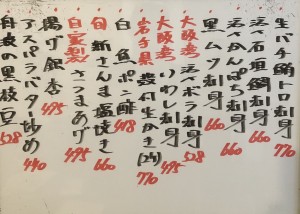 生バチ鮪トロ刺身 770
活〆石垣鯛刺身
活〆かんぱち刺身 660
黒ムツ刺身 660
大阪湾 活〆ボラ刺身 528
大阪湾 いわし刺身 495
岩手県 殻付生かき(2ヶ) 770
白魚ポン酢 418
旬 新さんま塩焼き 660
自家製 さつまあげ 495
揚げ銀杏 495
アスパラバター炒め 440
丹波の黒枝豆 528